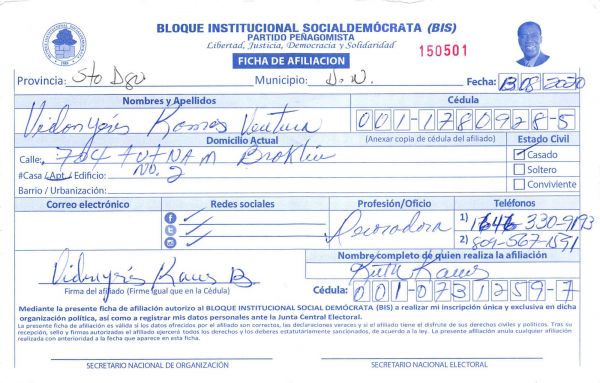 BLOQUE INSTITUCIONAL SOCIALDEMÓCRATA (BIS)
PARTIDO PEÑAGOMISTA
Libertad, Justicia, Democracia y Solidaridad
150501
FICHA DE AFILIACION
Provincia: Sto Dgo Municipio: D.N. Fecha: 13/08/2020
Nombres y Apellidos Cédula
Ramos Ventura 001-1780928-5
Domicilio Actual (Anexar copia de cédula del afiliado) Estado Civil
Calle: 704 PUTNAM Broklin Casado
#Casa /Apt./ Edificio: NO. 2 Soltero
Barrio / Urbanización: Conviviente
Correo electrónico Redes sociales Profesión/Oficio Teléfonos
Decoradora 1) 1646-330-9193
2) 809-567-1591
Nombre completo de quien realiza la afiliación
Ruth Ramos
Firma del afiliado (Firme igual que en la Cédula) Cédula: 001-0731259-7
Mediante la presente ficha de afiliación autorizo al BLOQUE INSTITUCIONAL SOCIAL DEMÓCRATA (BIS) a realizar mi inscripción única y exclusiva en dicha
organización política, así como a registrar mis datos personales ante la Junta Central Electoral.
La presente ficha de afiliación es válida si los datos ofrecidos por el afiliado son correctos, las declaraciones veraces y si el afiliado tiene el disfrute de sus derechos civiles y políticos. Tras su
recepción, sello y firmas autorizadas el afiliado ejercerá todos los derechos y los deberes estatutariamente sancionados, de acuerdo a la ley. La presente afiliación anula cualquier afiliación
realizada con anterioridad a la fecha que aparece en esta ficha.
SECRETARIO NACIONAL DE ORGANIZACIÓN SECRETARIO NACIONAL ELECTORAL